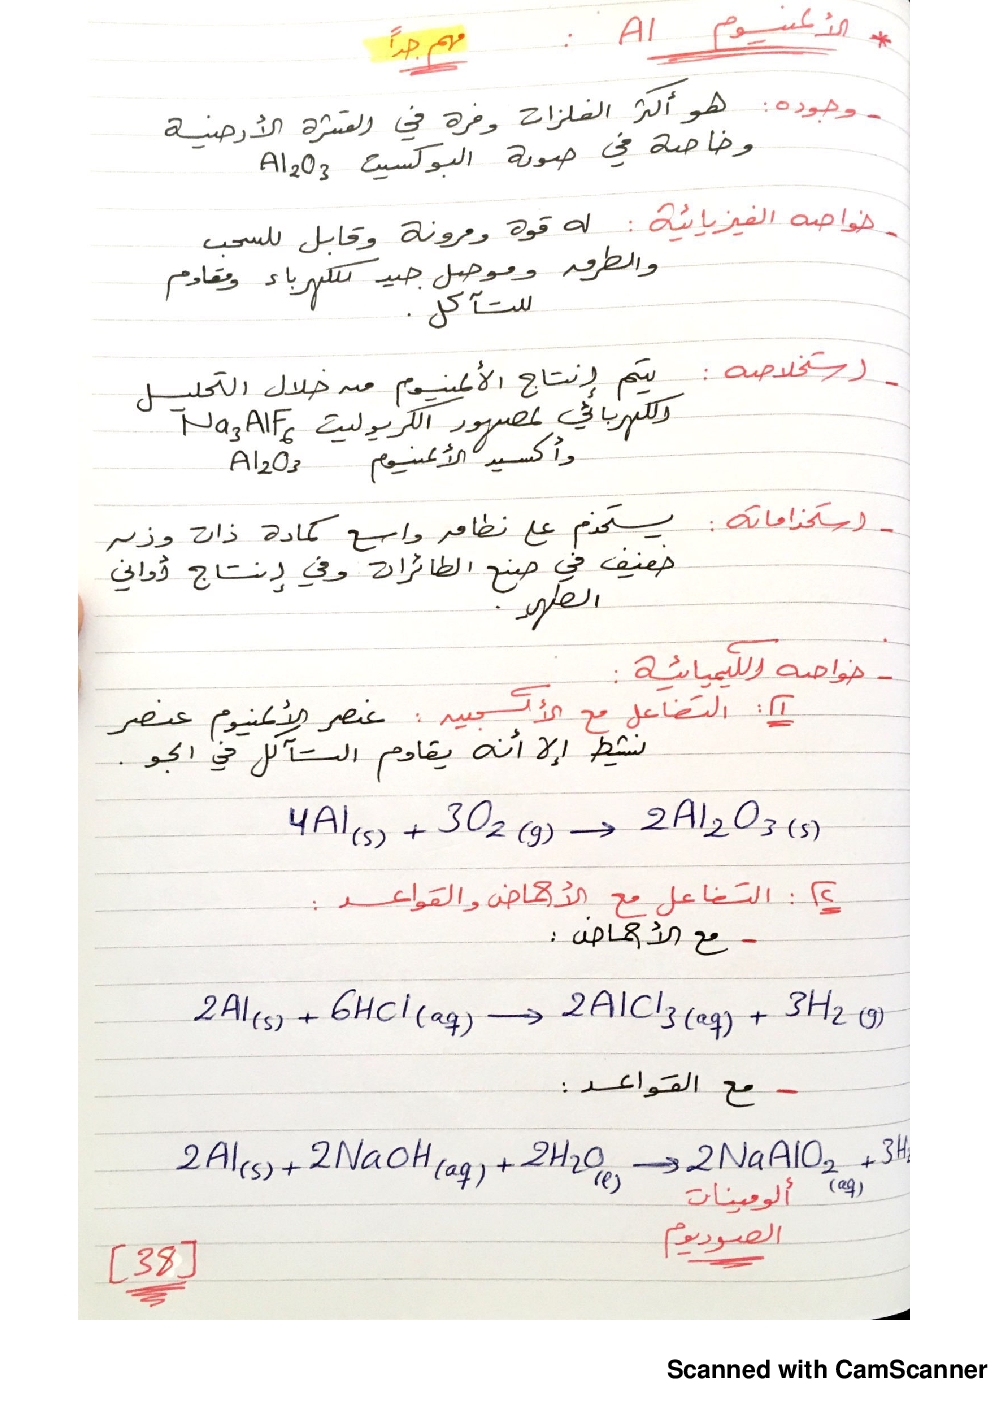 * الألمنيوم Al : مهم جداً
- وجوده: هو أكثر الفلزات وفرة في القشرة الأرضية
وخاصة في صورة البوكسيت Al₂O₃
- خواصه الفيزيائية: له قوة ومرونة وقابل للسحب
والطرق وموصل جيد للكهرباء ومقاوم
للتآكل.
- استخلاصه: يتم إنتاج الألمنيوم من خلال التحليل
الكهربائي لمصهور الكريوليت Na₃AlF₆
وأكسيد الألمنيوم Al₂O₃
- استخداماته: يستخدم على نطاق واسع كمادة ذات وزن
خفيف في صنع الطائرات وفي إنتاج أواني
الطهي.
- خواصه الكيميائية:
١: التفاعل مع الأكسجين: عنصر الألمنيوم عنصر
نشيط إلا أنه يقاوم التآكل في الجو.
4Al(s) + 3O₂(g) → 2Al₂O₃(s)
٢: التفاعل مع الأحماض والقواعد:
- مع الأحماض:
2Al(s) + 6HCl(aq) → 2AlCl₃(aq) + 3H₂(g)
- مع القواعد:
2Al(s) + 2NaOH(aq) + 2H₂O(l) → 2NaAlO₂(aq) + 3H₂
ألومينات
الصوديوم
[38]
Scanned with CamScanner